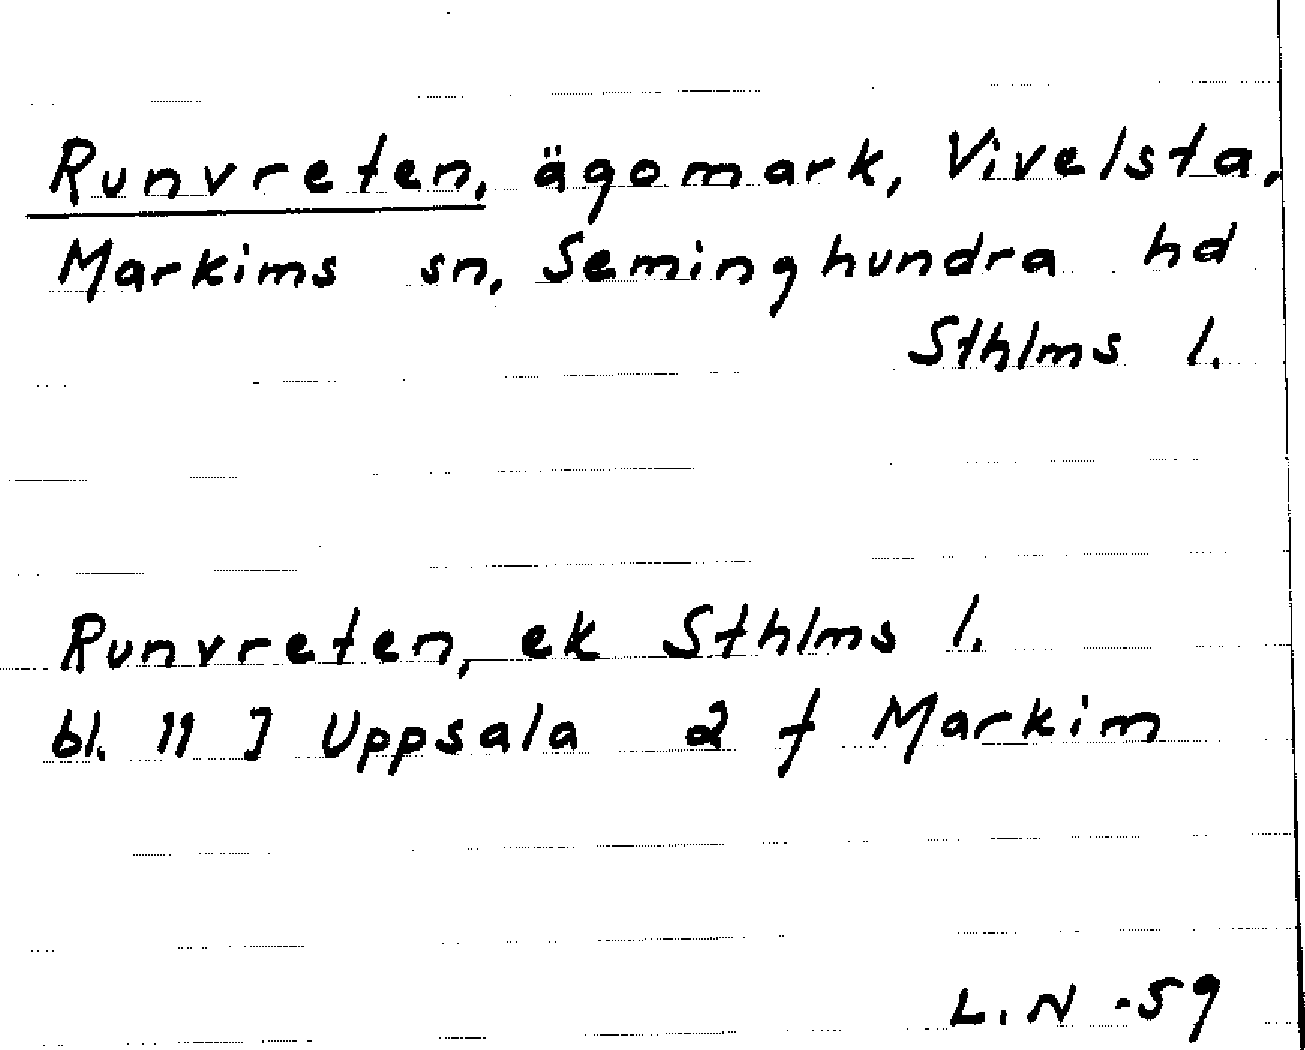 Runvreten, ägomark, Vivelsta,
Markims sn, Seminghundra hd
Sthlms l.
Runvreten, ek Sthlms l.
bl. 11 J Uppsala 2 f Markim
L.N -59